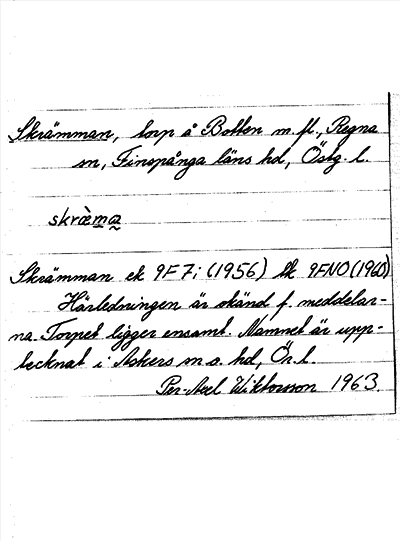 Skrämman, torp å Botten m. fl., Regna
sn, Finspånga läns hd, Östg. l.
skrœ̀m̲a̰
Skrämman ek 9F7i (1956) hk 9FNO (1960)
Härledningen är okänd f. meddelar-
na. Torpet ligger ensamt. Namnet är upp-
tecknat i Askers sn o. hd, Ör. l.
Per-Axel Wiktorsson 1963.